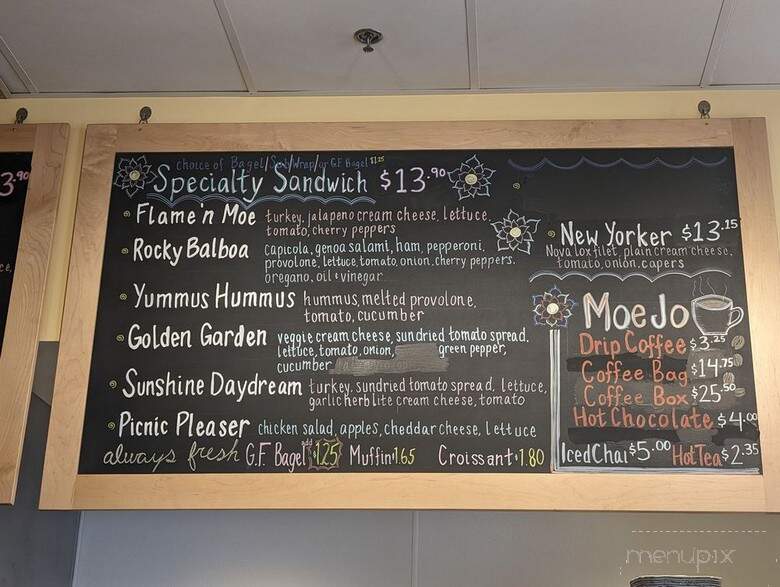 3.90
ce,
choice of Bagel/Salad/Wrap/or G.F. Bagel $1.25
Specialty Sandwich $13.90
Flame 'n Moe turkey, jalapeno cream cheese, lettuce,
tomato, cherry peppers
Rocky Balboa capicola, genoa salami, ham, pepperoni,
provolone, lettuce, tomato, onion, cherry peppers,
oregano, oil + vinegar
Yummus Hummus hummus, melted provolone,
tomato, cucumber
Golden Garden veggie cream cheese, sundried tomato spread,
lettuce, tomato, onion, green pepper,
cucumber
Sunshine Daydream turkey, sundried tomato spread, lettuce,
garlic herb lite cream cheese, tomato
Picnic Pleaser chicken salad, apples, cheddar cheese, lettuce
always fresh G.F. Bagel add $1.25 Muffin 1.65 Croissant 1.80
New Yorker $13.15
Nova lox filet, plain cream cheese,
tomato, onion, capers
Moe Jo
Drip Coffee $3.25
Coffee Bag $14.75
Coffee Box $25.50
Hot Chocolate $4.00
Iced Chai $5.00 Hot Tea $2.35
menupix